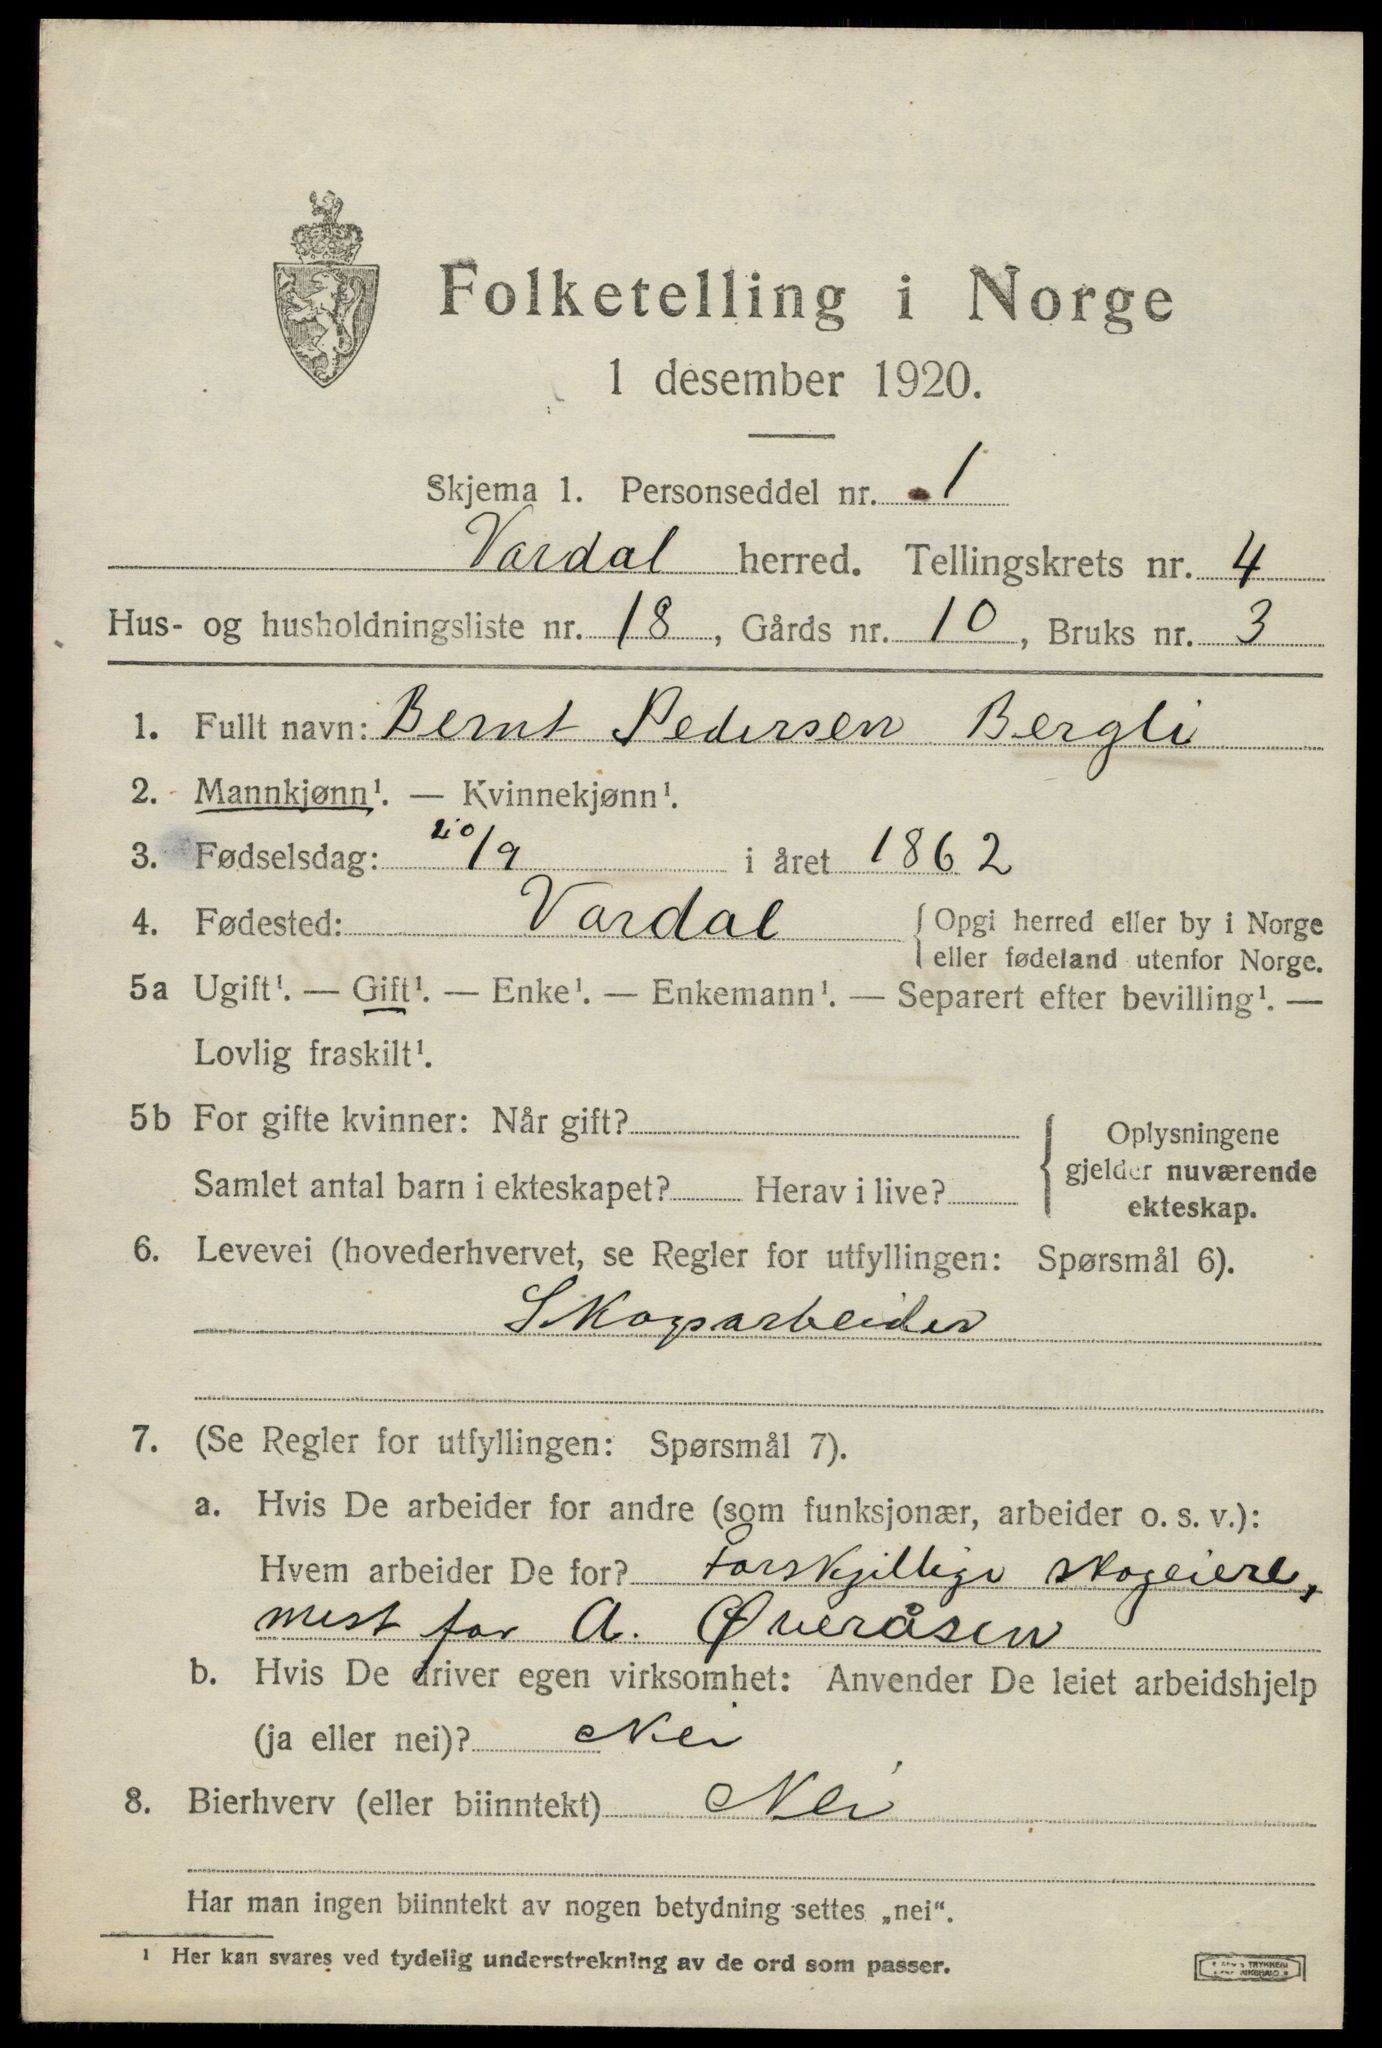 Folketelling i Norge
1 desember 1920.
Skjema 1. Personseddel nr. 1
Vardal herred. Tellingskrets nr. 4
Hus- og husholdningsliste nr. 18, Gårds nr. 10, Bruks nr. 3
1. Fullt navn: Bernt Pedersen Bergli
2. Mannkjønn¹. — Kvinnekjønn¹.
3. Fødselsdag: 20/9 i året 1862
4. Fødested: Vardal { Opgi herred eller by i Norge
eller fødeland utenfor Norge.
5a Ugift¹. — Gift¹. — Enke¹. — Enkemann¹. — Separert efter bevilling¹. —
Lovlig fraskilt¹.
5b For gifte kvinner: Når gift? { Oplysningene
gjelder nuværende
ekteskap.
Samlet antal barn i ekteskapet? Herav i live?
6. Levevei (hovederhvervet, se Regler for utfyllingen: Spørsmål 6).
Skogsarbeider
7. (Se Regler for utfyllingen: Spørsmål 7).
a. Hvis De arbeider for andre (som funksjonær, arbeider o. s. v.):
Hvem arbeider De for? Forskjillige skogeiere,
mest for A. Øveråsen
b. Hvis De driver egen virksomhet: Anvender De leiet arbeidshjelp
(ja eller nei)? Nei
8. Bierhverv (eller biinntekt) Nei
Har man ingen biinntekt av nogen betydning settes „nei“.
¹ Her kan svares ved tydelig understrekning av de ord som passer.